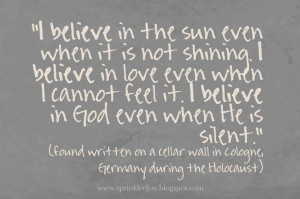 "I believe in the sun even
when it is not shining. I
believe in love even when
I cannot feel it. I believe
in God even when He is
silent."
(found written on a cellar wall in Cologne,
Germany during the Holocaust)
www.sprinkledjoy.blogspot.com